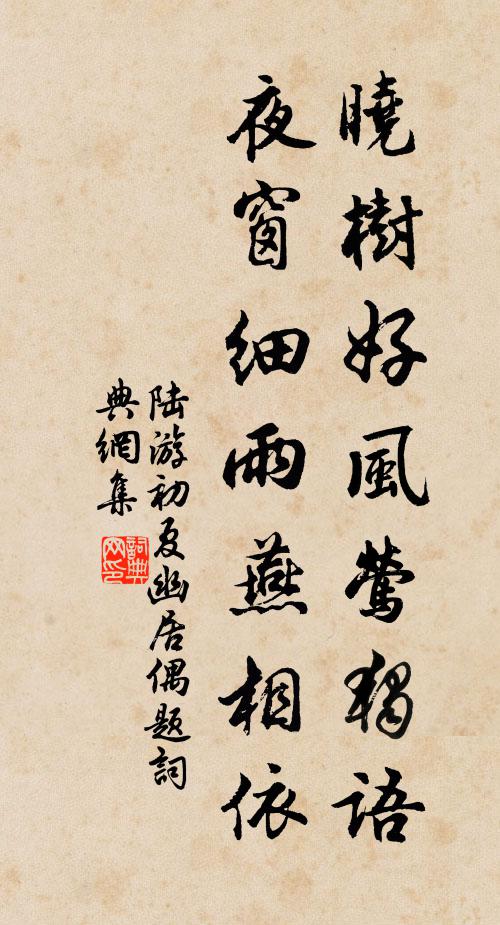 曉樹好風鶯獨語
夜窗細雨燕相依
陸游初夏幽居偶題詞
典網集
詞典網印